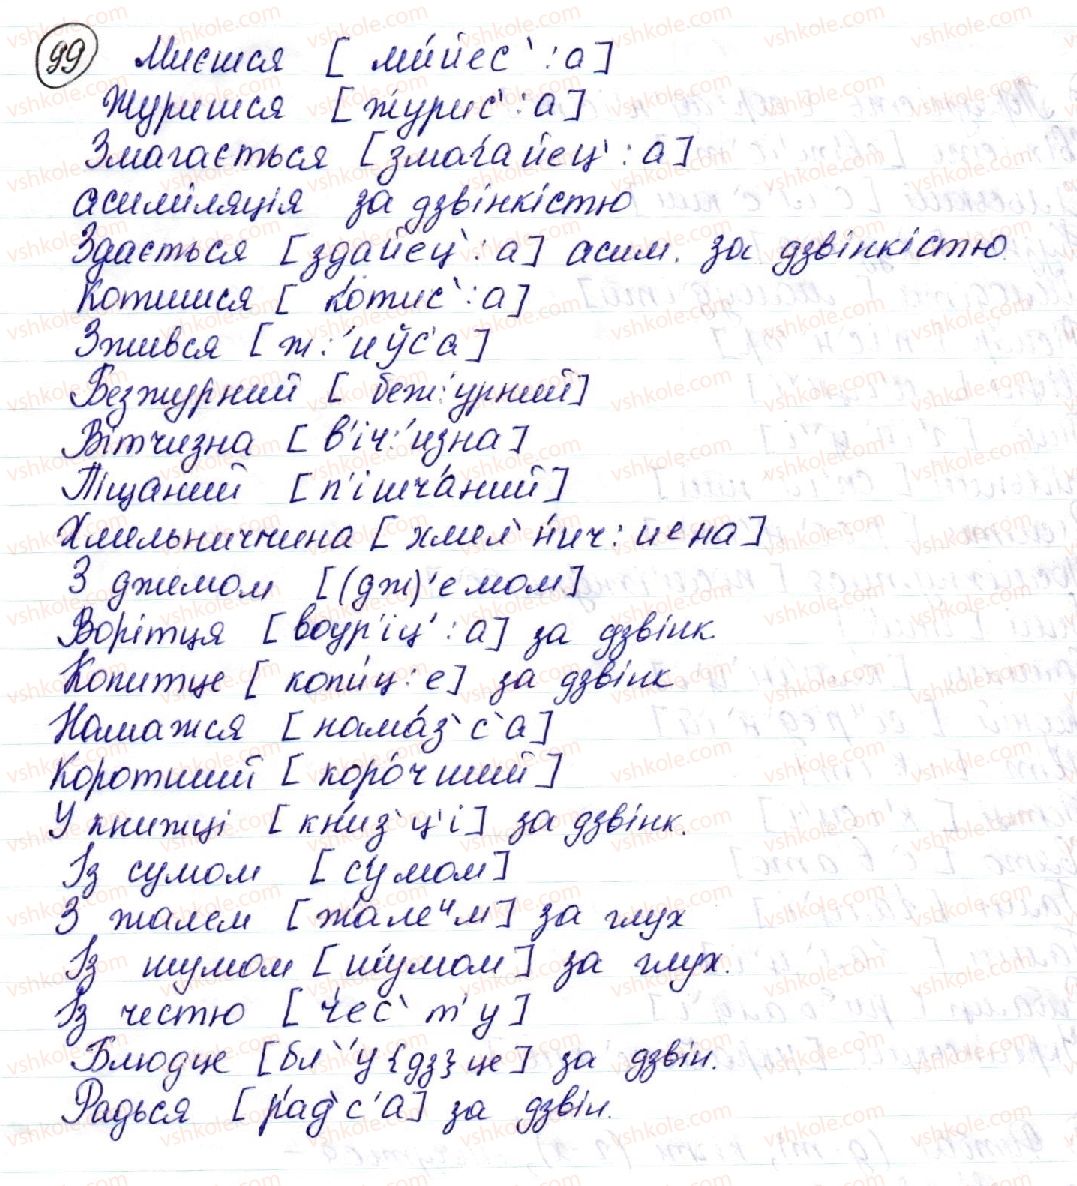 99 Миєшся [ми́йес':а]
Журишся [журис':а]
Змагається [змага́йец':а]
асиміляція за дзвінкістю
Здається [здайец':а] асим. за дзвінкістю
Котишся [котис':а]
Зжився [ж:'иўс'а]
Безжурний [беж:урний]
Вітчизна [в'іч:'изна]
Піщаний [п'ішча́ний]
Хмельниччина [хмел'нич:иена]
З джемом [(дж)'емом]
Ворітця [воур'іц':а] за дзвінк.
Копитце [копи́ц:е] за дзвінк
Намажся [нама́з'с'а]
Коротший [коро́чший]
У книжці [книз'ц'і] за дзвінк.
Із сумом [су́мом]
З жалем [жалеим] за глух
Із шумом [шумом] за глух.
Із честю [чес'т'у]
Блюдце [бл'у{дз}це] за дзвін.
Радься [рад'с'а] за дзвін.
vshkole.com